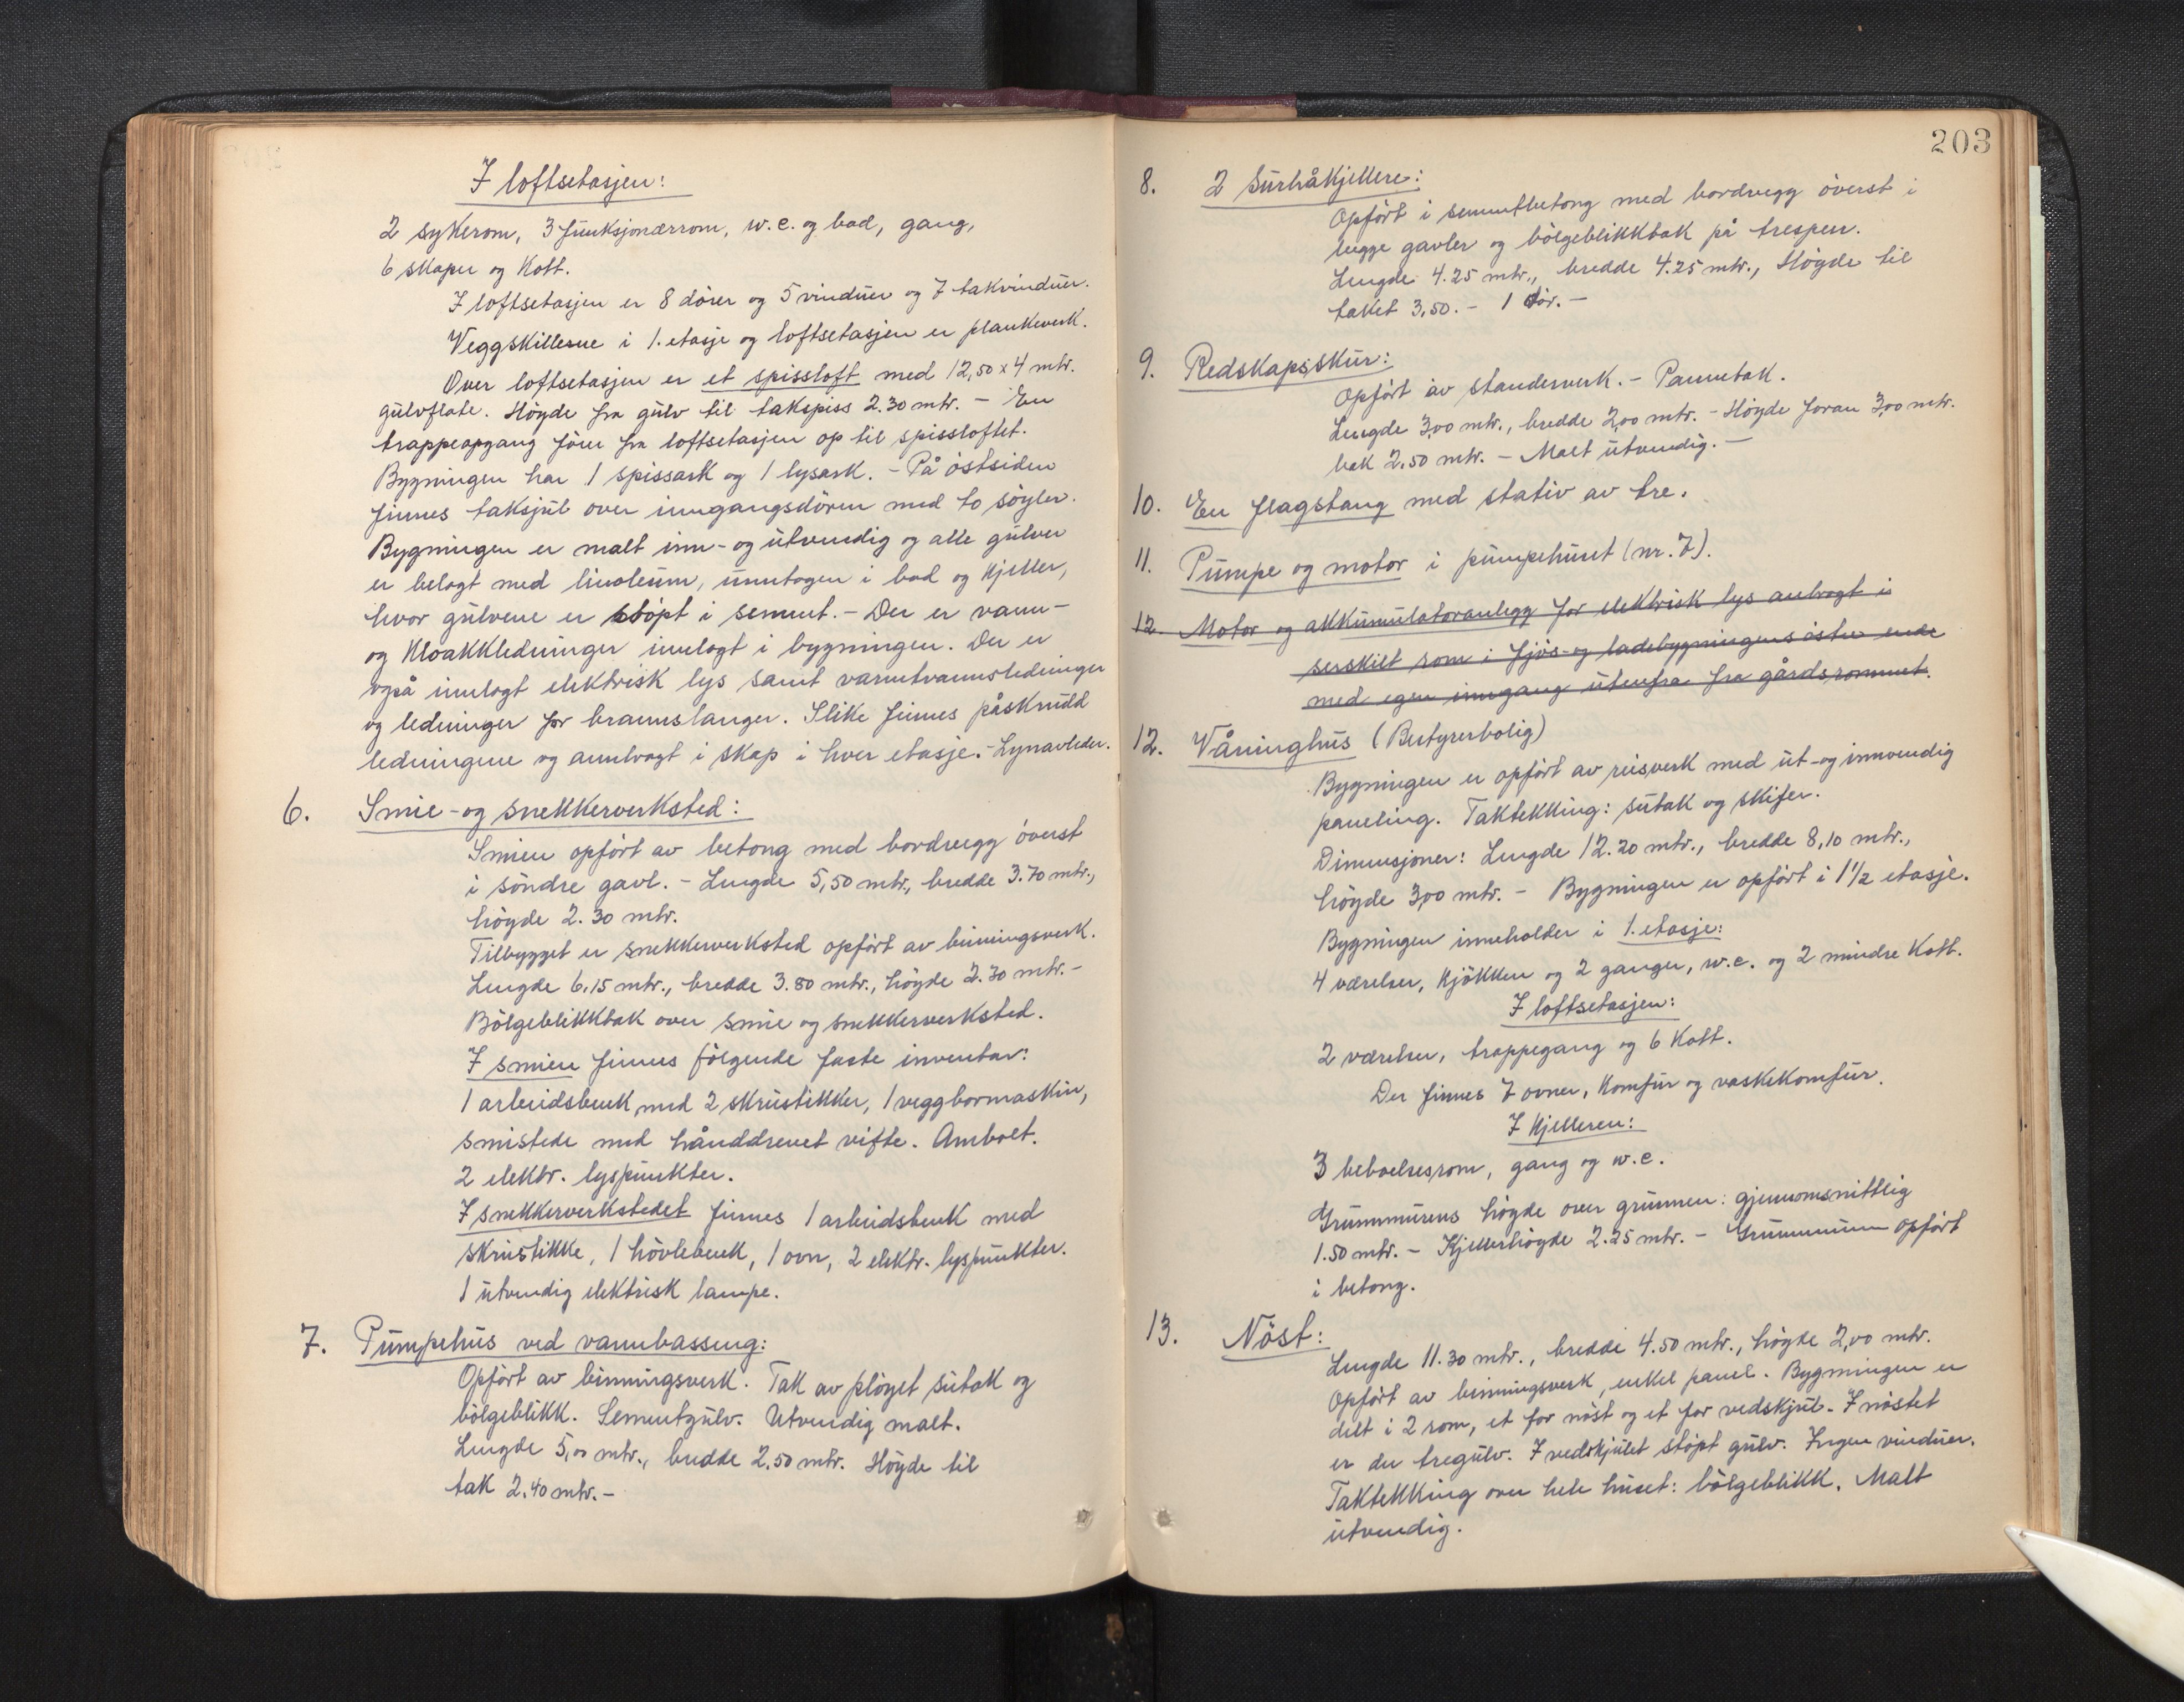 I loftsetasjen:
2 sykerom, 3 funksjonærrom, w.c. og bad, gang,
6 skaper og Kott.
I loftsetasjen er 8 dörer og 5 vinduer og 7 takvinduer.
Veggskillerne i 1. etasje og loftsetasjen er plankeverk.
Over loftsetasjen er et spissloft med 12,50 x 4 mtr.
gulvflate. Höyde fra gulv til takspiss 2.30 mtr. - En
trappeopgang förer fra loftsetasjen op til spissloftet.
Bygningen har 1 spissark og 1 lysark. - På östsiden
finnes takskjul over inngangsdören med to söyler.
Bygningen er malt inn- og utvendig og alle gulver
er belagt med linoleum, unntagen i bad og Kjeller,
hvor gulvene er stöpt i sement. - Der er vann-
og Kloakkledninger innlagt i bygningen. Der er
også innlagt elektrisk lys samt varmtvannsledninger
og ledninger for brannslanger. Slike finnes påskrudd
ledningene og anbragt i skap i hver etasje. - Lynavleder.
6. Smie- og snekkerverksted:
Smien opfört av betong med bordvegg överst
i söndre gavl. - Lengde 5,50 mtr., bredde 3.70 mtr.,
höyde 2.30 mtr.
Tilbygget er snekkerverksted opfört av binningsverk.
Lengde 6,15 mtr., bredde 3.80 mtr., höyde 2.30 mtr. -
Bölgeblikktak over smie og snekkerverksted.
I smien finnes fölgende faste inventar:
1 arbeidsbenk med 2 skrustikker, 1 veggbormaskin,
smistede med hånddrevet vifte. Ambolt.
2 elektr. lyspunkter.
I snekkerverkstedet finnes 1 arbeidsbenk med
skrustikke, 1 hövlebenk, 1 ovn, 2 elektr. lyspunkter.
1 utvendig elektrisk lampe.
7. Pumpehus ved vannbasseng:
Opfört av binningsverk. Tak av plöyet sutak og
bölgeblikk. Sementgulv. Utvendig malt.
Lengde 5,00 mtr., bredde 2.50 mtr. Höyde til
tak 2.40 mtr. -
203
8. 2 Surhåkjellere:
Opfört i sementbetong med bordvegg överst i
begge gavler og bölgeblikktak på tresperr.
Lengde 4.25 mtr., bredde 4.25 mtr., Höyde til
taket 3,50. - 1 dör. -
9. Redskapsskur:
Opfört av standerverk. - Pannetak.
Lengde 3,00 mtr., bredde 2,00 mtr. - Höyde foran 3,00 mtr.
bak 2.50 mtr. - Malt utvendig. -
10. En flagstang med stativ av tre.
11. Pumpe og motor i pumpehuset (nr. 7).
12. Motor og akkumulatoranlegg for elektrisk lys anbragt i
serskilt rom i fjös- og ladebygningens östre ende
med egen inngang utenfra fra gårdsrommet.
12. Våninghus (Bestyrerbolig)
Bygningen er opfört av reisverk med ut- og innvendig
paneling. Taktekking: sutak og skifer.
Dimensjoner: Lengde 12.20 mtr., bredde 8,10 mtr.,
höyde 3,00 mtr. - Bygningen er opfört i 1 1/2 etasje.
Bygningen inneholder i 1. etasje:
4 værelser, Kjökken og 2 ganger, w.c. og 2 mindre Kott.
I loftsetasjen:
2 værelser, trappegang og 6 Kott.
Der finnes 7 ovner, Komfur og vaskekomfur.
I Kjelleren:
3 beboelsesrom, gang og w.c.
Grunnmurens höyde over grunnen: gjennomsnittlig
1.50 mtr. - Kjellerhöyde 2.25 mtr. - Grunnmuren opfört
i betong.
13. Nöst:
Lengde 11.30 mtr., bredde 4.50 mtr., höyde 2,00 mtr.
Opfört av binningsverk, enkel panel. Bygningen er
delt i 2 rom, et for nöst og et for vedskjul. I nöstet
er der tregulv. I vedskjulet stöpt gulv. Ingen vinduer.
Taktekking over hele huset: bölgeblikk. Malt
utvendig.